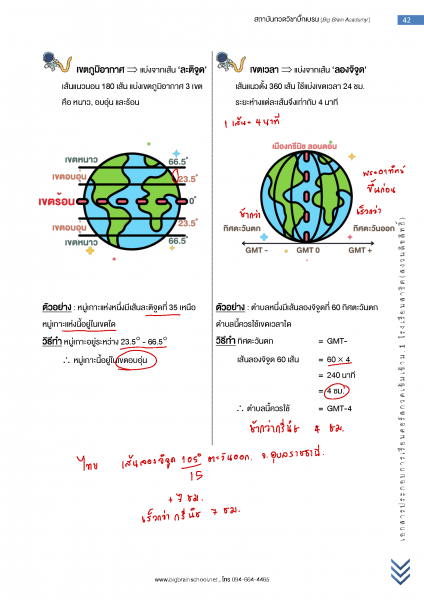 สถาบันกวดวิชาบิ๊กเบรน (Big Brain Academy) 42
เขตภูมิอากาศ ⇒ แบ่งจากเส้น 'ละติจูด'
เส้นแนวนอน 180 เส้น แบ่งเขตภูมิอากาศ 3 เขต
คือ หนาว, อบอุ่น และร้อน
เขตหนาว 66.5°
เขตอบอุ่น 23.5°
เขตร้อน 0°
เขตอบอุ่น 23.5°
เขตหนาว 66.5°
ตัวอย่าง : หมู่เกาะแห่งหนึ่งมีเส้นละติจูดที่ 35 เหนือ
หมู่เกาะแห่งนี้อยู่ในเขตใด
วิธีทำ หมู่เกาะอยู่ระหว่าง 23.5° - 66.5°
∴ หมู่เกาะนี้อยู่ในเขตอบอุ่น
เขตเวลา ⇒ แบ่งจากเส้น 'ลองจิจูด'
เส้นแนวตั้ง 360 เส้น ใช้แบ่งเขตเวลา 24 ชม.
ระยะห่างแต่ละเส้นจึงเท่ากับ 4 นาที
1 เส้น = 4 นาที
เมืองกรีนิช ลอนดอน
พระอาทิตย์
ขึ้นก่อน
ช้ากว่า เร็วกว่า
ทิศตะวันตก ทิศตะวันออก
GMT - 0 GMT +
ตัวอย่าง : ตำบลหนึ่งมีเส้นลองจิจูดที่ 60 ทิศตะวันตก
ตำบลนี้ควรใช้เขตเวลาใด
วิธีทำ ทิศตะวันตก = GMT-
เส้นลองจิจูด 60 เส้น = 60 × 4
= 240 นาที
= 4 ชม.
∴ ตำบลนี้ควรใช้ = GMT-4
ช้ากว่ากรีนิช 4 ชม.
ไทย เส้นลองจิจูด 105° ตะวันออก จ.อุบลราชธานี
15
+7 ชม.
เร็วกว่า กรีนิช 7 ชม.
www.bigbrainschool.net , โทร 094-664-4465